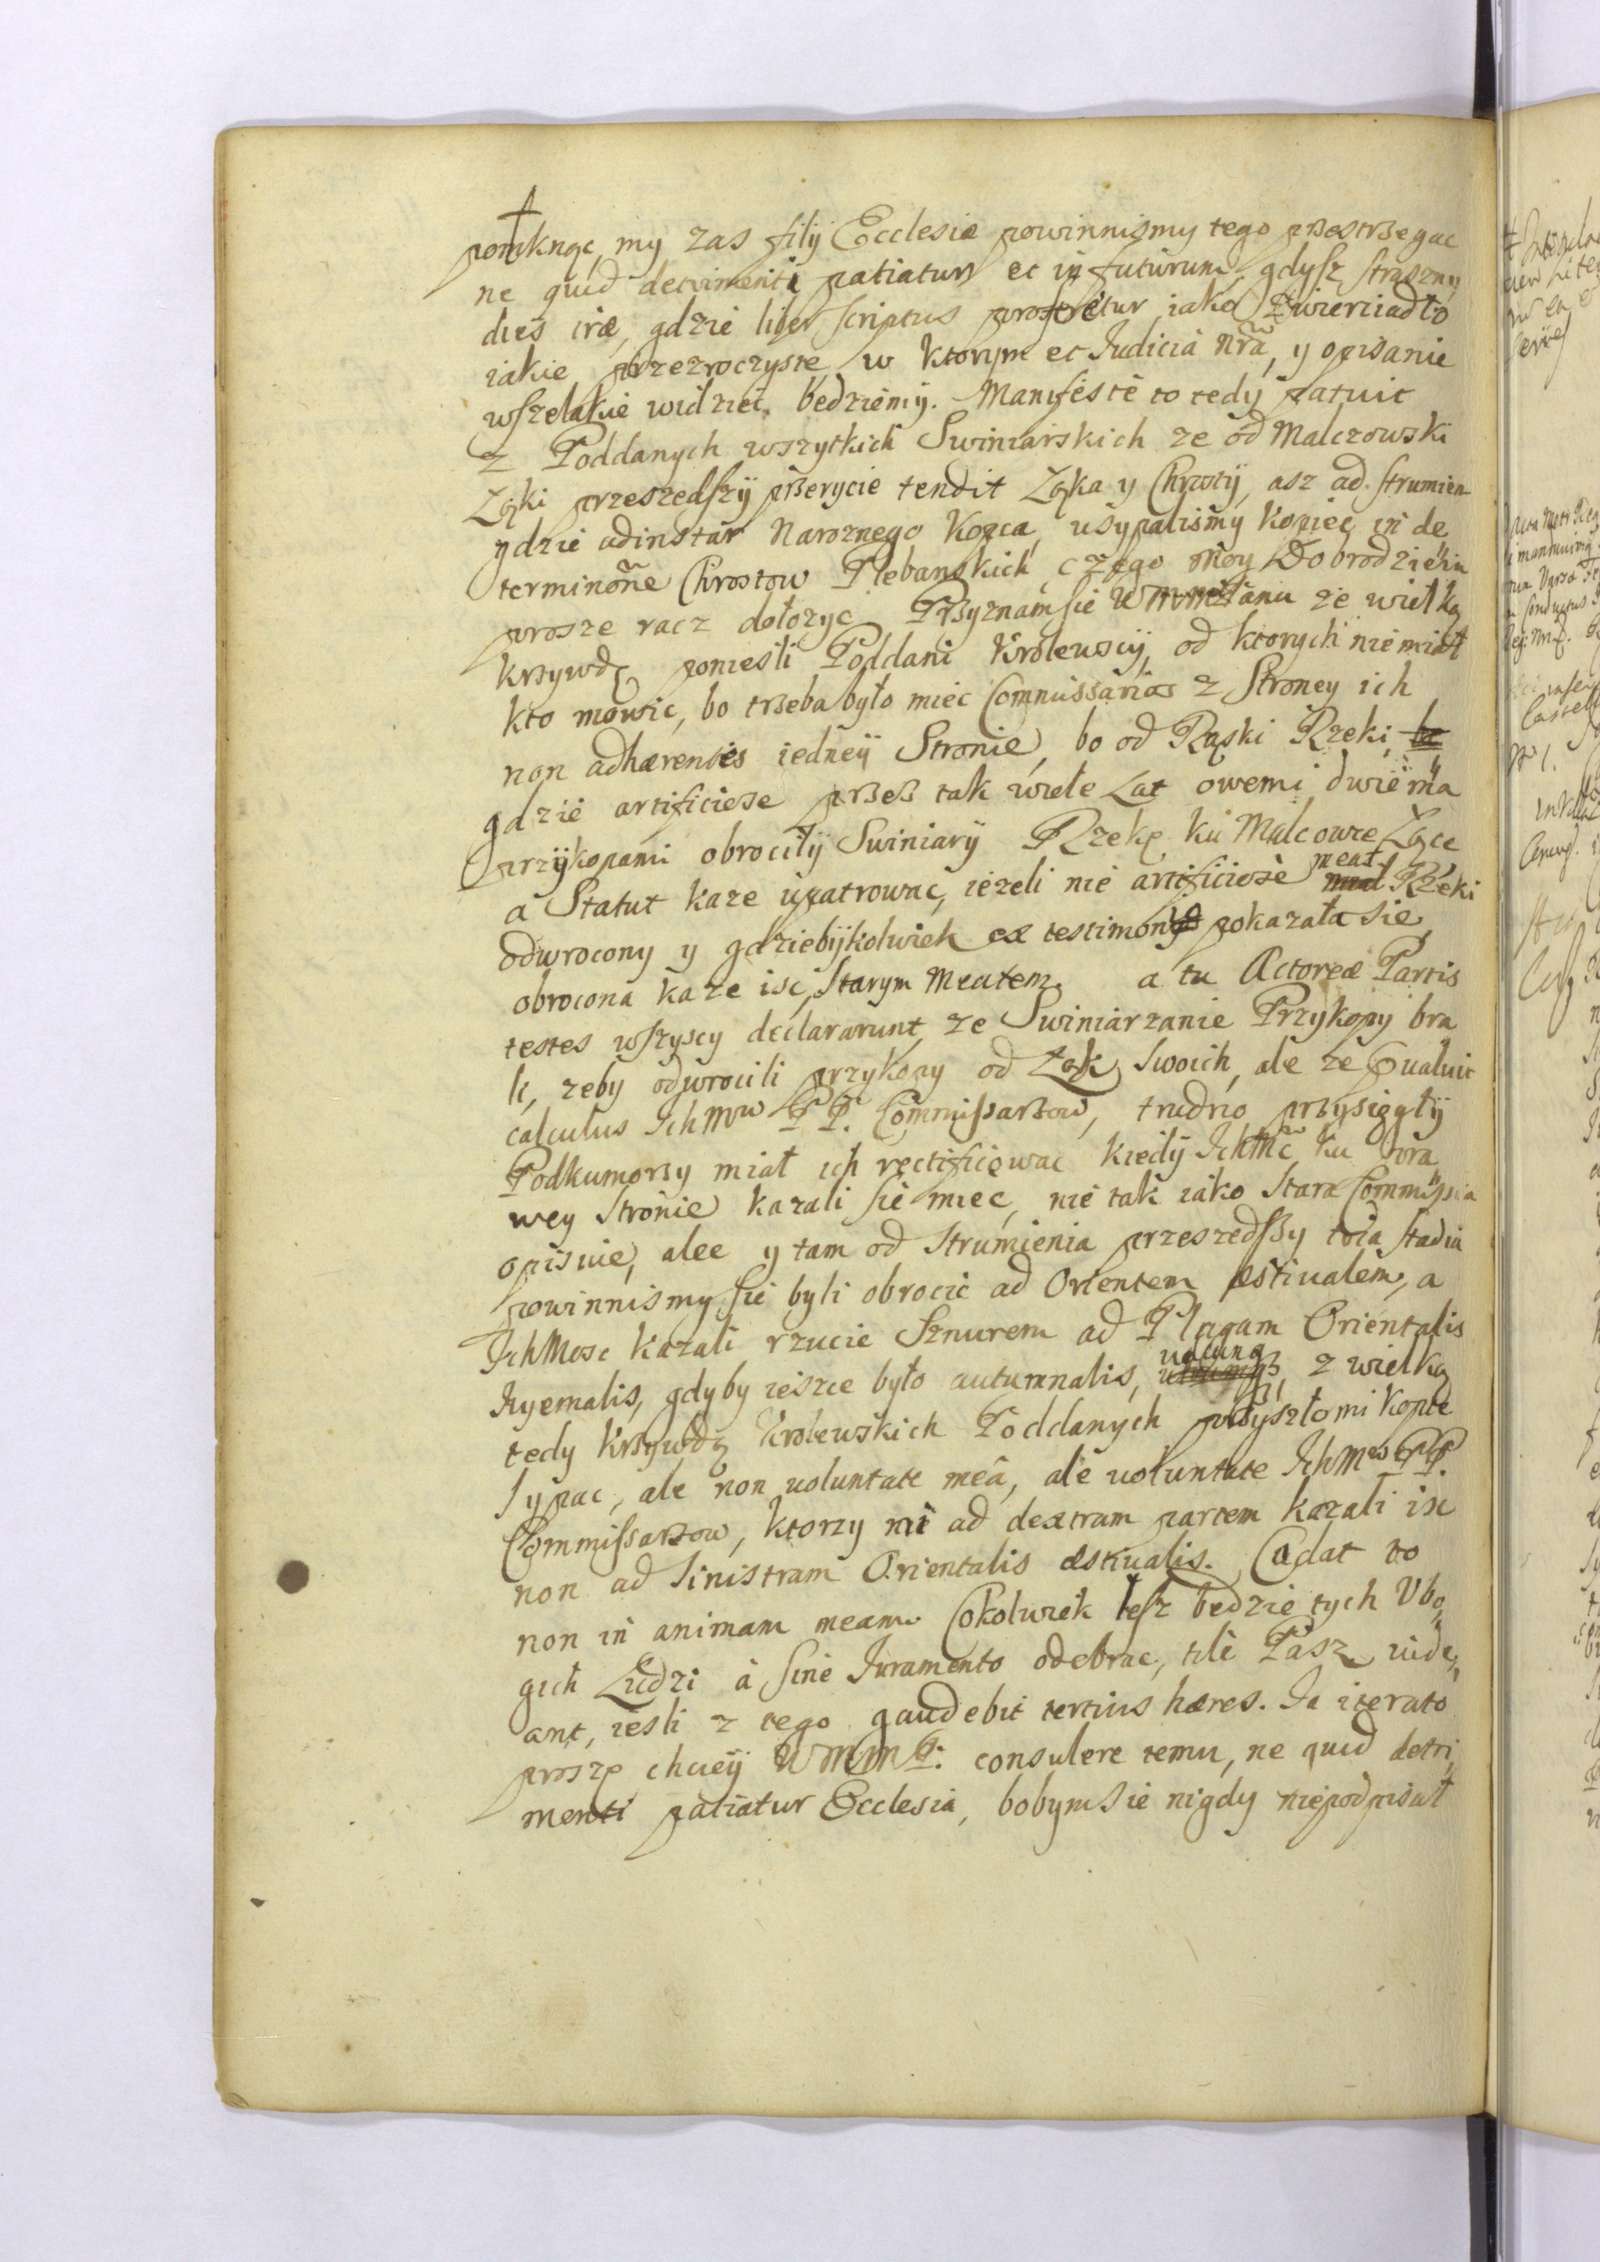 pomknąc, my zas filij Ecclesiæ powinnismy tego przestrzegac
ne quid detrimenti patiatur et in futurum, gdysz straszny
dies iræ, gdzie liber scriptus proferetur iako Zwierciadło
iakie przezroczyste w ktorym et Judicia nrã, y opisanie
wszelakie widziec bedziemy. Manifestè to tedy patuit
z Poddanych wszytkich Swiniarskich ze od Malczowski
Łąki przeszedszÿ przerycie tendit Łąka y Chrosty, asz ad strumien
gdzie adinstar Naroznego Kopca, usypalismy kopiec in de
terminoñe Chrostow Plebanskich, czego moy Dobrodzieiu
prosze racz dołozyc. Przyznam sie WMMPanu ze wielką
krzywdę poniesli Poddani Krolewscÿ, od ktorych nie miał
kto mowic, bo trzeba było miec Commissarios z Stroney ich
non adhærentes iedneÿ Stronie, bo od Rąski Rzeki,
gdzie artificiose przez tak wiele Lat owemi dwiema
przÿkopami obrocilÿ Swiniarÿ Rzekę ku Malcowce Łące
a Statut kaze upatrowac, iezeli nie artificiosè meat Rzeki
odwrocony y gdziebÿkolwiek ex testimonio pokazała sie
obrocona kaze isc starym Meatem. a tu Actoreæ Partis
testes wszyscy declararunt, ze Swiniarzanie Przykopy bra
li, zeby odwrocili przykopy od Łąk swoich, ale ze Evaluit
calculus IchMw PP. Commissarzow, trudno przysięgłÿ
Podkumorzy miał ich rectificowac kiedÿ Ichmc̃ ku pra
wey stronie kazali sie miec, nie tak iako stara Commissia
opisuie, alee y tam od strumienia przeszedszy troia stadia
powinnismy sie byli obrocic ad Orientem æstivalem, a
IchMosc kazali rzucie Sznurem ad Plagam Orientalis
hyemalis, gdyby ieszce było autumnalis, z wielką
tedy krzywdą Krolewskich Poddanych przyszło mi Kopce
sypac, ale non voluntate meâ, ale voluntate IchMw PP.
Commissarzow, ktorzy mi ad dextram partem kazali isc
non ad sinistram Orientalis æstivalis. Cadat to
non in animam meam. Cokolwiek tesz bedzie tych Vbo
gich Ludzi à sine Iuramento odebrac, tilè Pasz vide
ant, iesli z tego gaudebit tertius hæres. Ia iterato
proszę chcieÿ WMMP. consulere temu, ne quid detri
menti patiatur Ecclesia, bobym sie nigdy niepodpisał